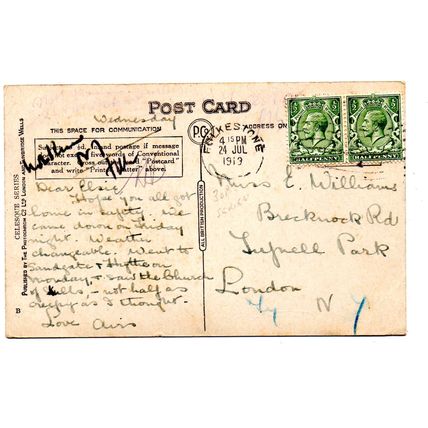 Wednesday
POST CARD
THIS SPACE FOR COMMUNICATION
ADDRESS ON
stamp postage if message
not exceeding five words of Conventional
character. Cross out "Postcard"
and write "Printed Matter" above.
Dear Elsie
Hope you all got
home in safety. We
came down on Friday
night. Weather
changeable. Went to
Sandgate & Hythe on
Monday & saw the Church
of skulls, - not half as
creepy as I thought.
Love
CELESQUE SERIES
PUBLISHED BY THE PHOTOCHROM CO LTD LONDON AND TUNBRIDGE WELLS
B
ALL BRITISH PRODUCTION
FOLKESTONE
4 15 PM
24 JUL
1919
HALFPENNY
HALFPENNY
Miss E. Williams
Brecknock Rd
Tufnell Park
London
N